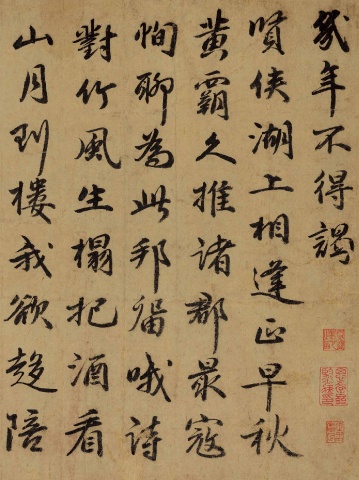 幾年不得謁
賢侯湖上相逢正早秋
黃霸久推諸郡最寇
恂聊為此邦留哦詩
對竹風生榻把酒看
山月到樓我欲趍陪